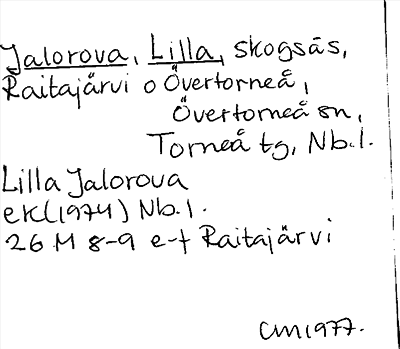 Jalorova, Lilla, skogsås,
Raitajärvi o Övertorneå,
Övertorneå sn,
Torneå tg, Nb.l.
Lilla Jalorova
ek(1974) Nb.l.
26 M 8-9 e-f Raitajärvi
CM1977.